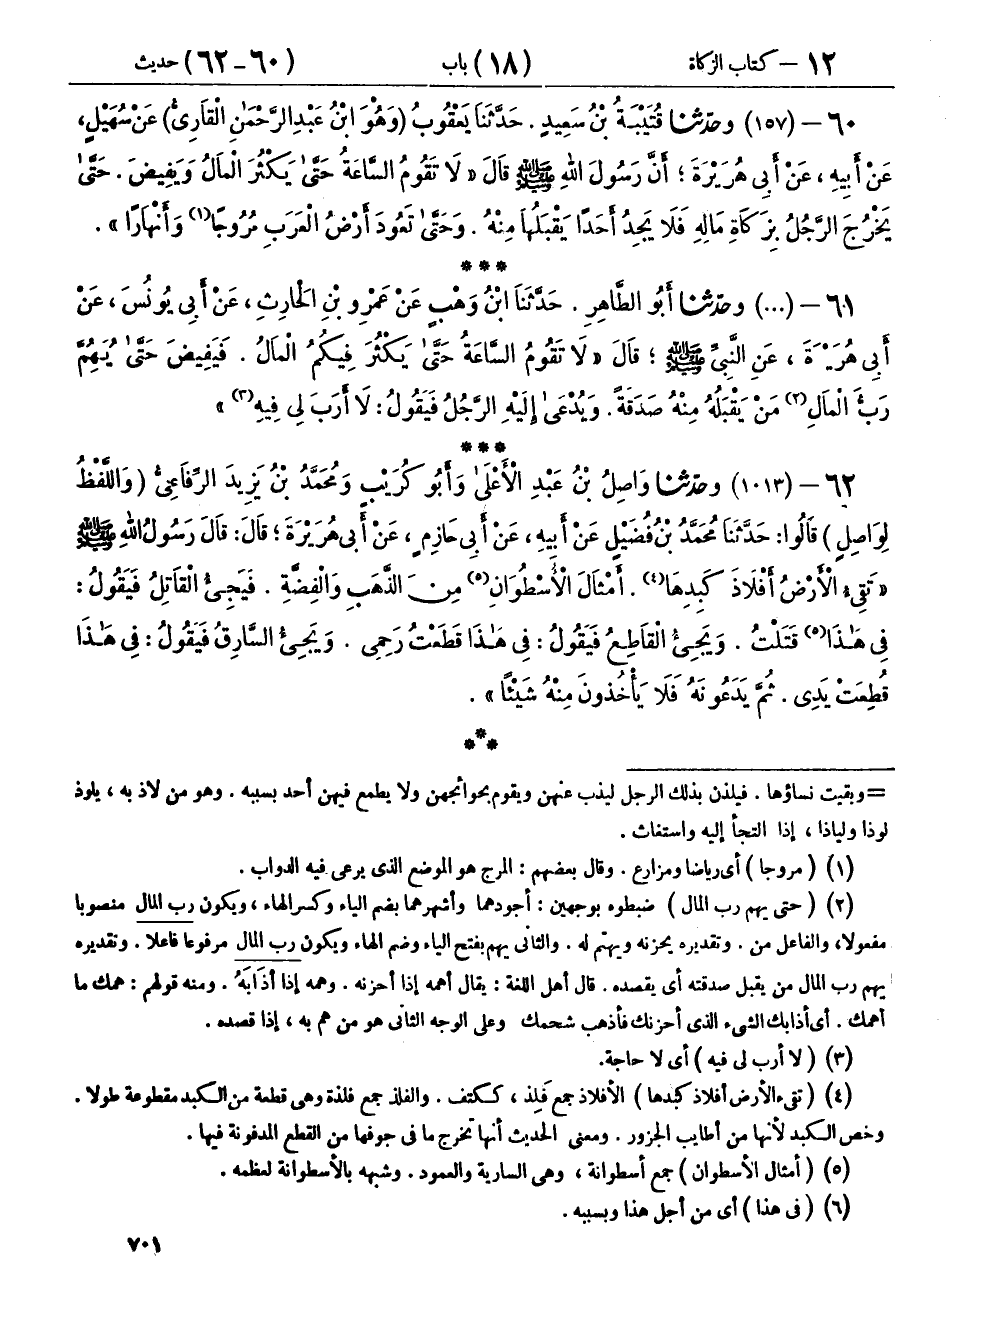 ١٢ – كتاب الزكاة (١٨) باب (٦٠–٦٢) حديث
٦٠ – (١٥٧) وحدّثنا قُتَيْبَةُ بْنُ سَعِيدٍ . حَدَّثَنَا يَعْقُوبُ (وَهُوَ ابْنُ عَبْدِ الرَّحْمٰنِ الْقَارِىُّ) عَنْ سُهَيْلٍ،
عَنْ أَبِيهِ ، عَنْ أَبِى هُرَيْرَةَ ؛ أَنَّ رَسُولَ اللهِ ﷺ قَالَ « لَا تَقُومُ السَّاعَةُ حَتَّىٰ يَكْثُرَ الْمَالُ وَيَفِيضَ . حَتَّىٰ
يَخْرُجَ الرَّجُلُ بِزَكَاةِ مَالِهِ فَلَا يَجِدُ أَحَدًا يَقْبَلُهَا مِنْهُ . وَحَتَّىٰ تَعُودَ أَرْضُ الْعَرَبِ مُرُوجًا(١) وَأَنْهَارًا » .
* * *
٦١ – (...) وحدّثنا أَبُو الطَّاهِرِ . حَدَّثَنَا ابْنُ وَهْبٍ عَنْ عَمْرِو بْنِ الْحَارِثِ ، عَنْ أَبِى يُونُسَ ، عَنْ
أَبِى هُرَيْرَةَ ، عَنِ النَّبِىِّ ﷺ ؛ قَالَ « لَا تَقُومُ السَّاعَةُ حَتَّىٰ يَكْثُرَ فِيكُمُ الْمَالُ . فَيَفِيضَ حَتَّىٰ يُهِمَّ
رَبَّ الْمَالِ(٢) مَنْ يَقْبَلُهُ مِنْهُ صَدَقَةً . وَيُدْعَىٰ إِلَيْهِ الرَّجُلُ فَيَقُولُ : لَا أَرَبَ لِى فِيهِ(٣) »
* * *
٦٢ – (١٠١٣) وحدّثنا وَاصِلُ بْنُ عَبْدِ الْأَعْلَىٰ وَأَبُو كُرَيْبٍ وَمُحَمَّدُ بْنُ يَزِيدَ الرِّفَاعِىُّ ( وَاللَّفْظُ
لِوَاصِلٍ ) قَالُوا : حَدَّثَنَا مُحَمَّدُ بْنُ فُضَيْلٍ عَنْ أَبِيهِ ، عَنْ أَبِى حَازِمٍ ، عَنْ أَبِى هُرَيْرَةَ ؛ قَالَ : قَالَ رَسُولُ اللهِ ﷺ
« تَقِىءُ الْأَرْضُ أَفْلَاذَ كَبِدِهَا(٤) . أَمْثَالَ الْأُسْطُوَانِ(٥) مِنَ الذَّهَبِ وَالْفِضَّةِ . فَيَجِىءُ الْقَاتِلُ فَيَقُولُ :
فِى هَٰذَا(٥) قَتَلْتُ . وَيَجِىءُ الْقَاطِعُ فَيَقُولُ : فِى هَٰذَا قَطَعْتُ رَحِمِى . وَيَجِىءُ السَّارِقُ فَيَقُولُ : فِى هَٰذَا
قُطِعَتْ يَدِى . ثُمَّ يَدَعُونَهُ فَلَا يَأْخُذُونَ مِنْهُ شَيْئًا » .
* * *
= وبقيت نساؤها . فيلذن بذلك الرجل ليذب عنهن ويقوم بحوائجهن ولا يطمع فيهن أحد بسببه . وهو من لاذ به ، يلوذ
لوذا ولياذا ، إذا التجأ إليه واستغاث .
(١) ( مروجا ) أى رياضا ومزارع . وقال بعضهم : المرج هو الموضع الذى يرعى فيه الدواب .
(٢) ( حتى يهم رب المال ) ضبطوه بوجهين : أجودهما وأشهرهما بضم الياء وكسر الهاء ، ويكون رب المال منصوبا
مفعولا، والفاعل من . وتقديره يحزنه ويهتم له . والثانى يهم بفتح الياء وضم الهاء ويكون رب المال مرفوعا فاعلا . وتقديره
يهم رب المال من يقبل صدقته أى يقصده . قال أهل اللغة : يقال أهمه إذا أحزنه . وهمه إذا أذَابَهُ . ومنه قولهم : همك ما
أهمك . أى أذابك الشىء الذى أحزنك فأذهب شحمك وعلى الوجه الثانى هو من هم به ، إذا قصده .
(٣) ( لا أرب لى فيه ) أى لا حاجة.
(٤) ( تقىء الأرض أفلاذ كبدها ) الأفلاذ جمع فَلِذ ، ككتف . والفلذ جمع فلذة وهى قطعة من الكبد مقطوعة طولا .
وخص الكبد لأنها من أطايب الجزور . ومعنى الحديث أنها تخرج ما فى جوفها من القطع المدفونة فيها .
(٥) ( أمثال الأسطوان ) جمع أسطوانة ، وهى السارية والعمود . وشبهه بالأسطوانة لعظمه .
(٦) ( فى هذا ) أى من أجل هذا وبسببه .
٧٠١